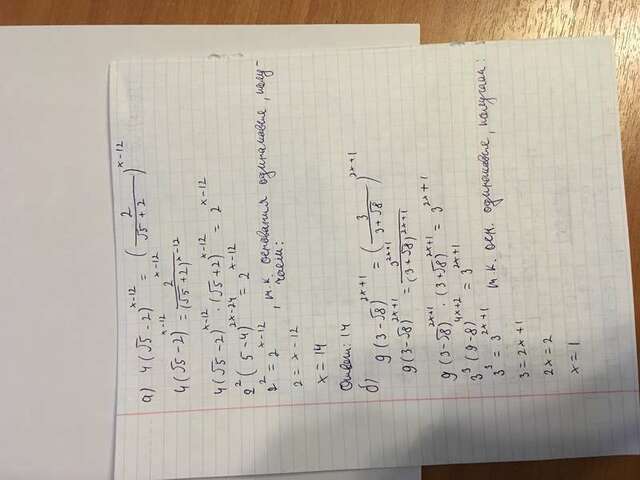 а) 4(√5 - 2)^{x-12} = (2/(√5 + 2))^{x-12}
4(√5 - 2)^{x-12} = 2^{x-12}/(√5 + 2)^{x-12}
4(√5 - 2)^{x-12} · (√5 + 2)^{x-12} = 2^{x-12}
2^2 (5 - 4)^{2x-24} = 2^{x-12}
2^2 = 2^{x-12}, т.к. основания одинаковые, полу-
чаем:
2 = x - 12
x = 14
Ответ: 14
б) 9(3 - √8)^{2x+1} = (3/(3 + √8))^{2x+1}
9(3 - √8)^{2x+1} = 3^{2x+1}/(3 + √8)^{2x+1}
9(3 - √8)^{2x+1} · (3 + √8)^{2x+1} = 3^{2x+1}
3^3 (9 - 8)^{4x+2} = 3^{2x+1}
3^3 = 3^{2x+1} т.к. осн. одинаковые, получаем:
3 = 2x + 1
2x = 2
x = 1